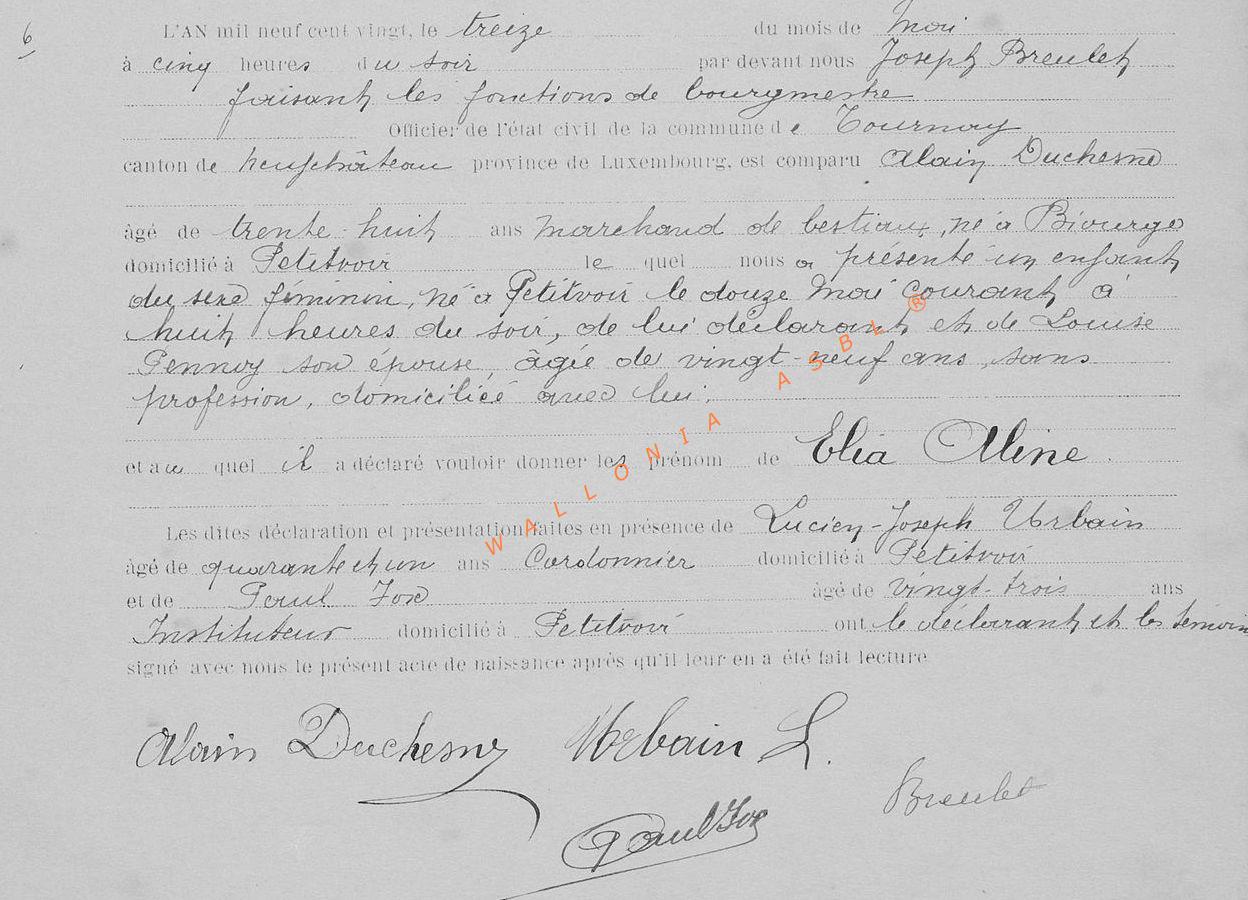 6
L'AN mil neuf cent vingt, le treize du mois de Mai
à cinq heures du soir par devant nous Joseph Breulet
faisant les fonctions de bourgmestre
Officier de l'état civil de la commune de Tournay
canton de Neufchâteau province de Luxembourg, est comparu Alain Duchesne
âgé de trente-huit ans marchand de bestiaux, né à Biourge
domicilié à Petitvoir le quel nous a présenté un enfant
du sexe féminin, né à Petitvoir le douze Mai courant à
huit heures du soir, de lui déclarant et de Louise
Pennoy son épouse, âgée de vingt-neuf ans, sans
profession, domiciliée avec lui.
et au quel il a déclaré vouloir donner les prénom de Elia Aline.
Les dites déclaration et présentation faites en présence de Lucien-Joseph Urbain
âgé de quarante et un ans Cordonnier domicilié à Petitvoir
et de Paul Fox âgé de vingt-trois ans
Instituteur domicilié à Petitvoir ont le déclarant et les témoins
signé avec nous le présent acte de naissance après qu'il leur en a été fait lecture
Alain Duchesne Urbain L.
Paul Fox Breulet
WALLONIA ASBL ®